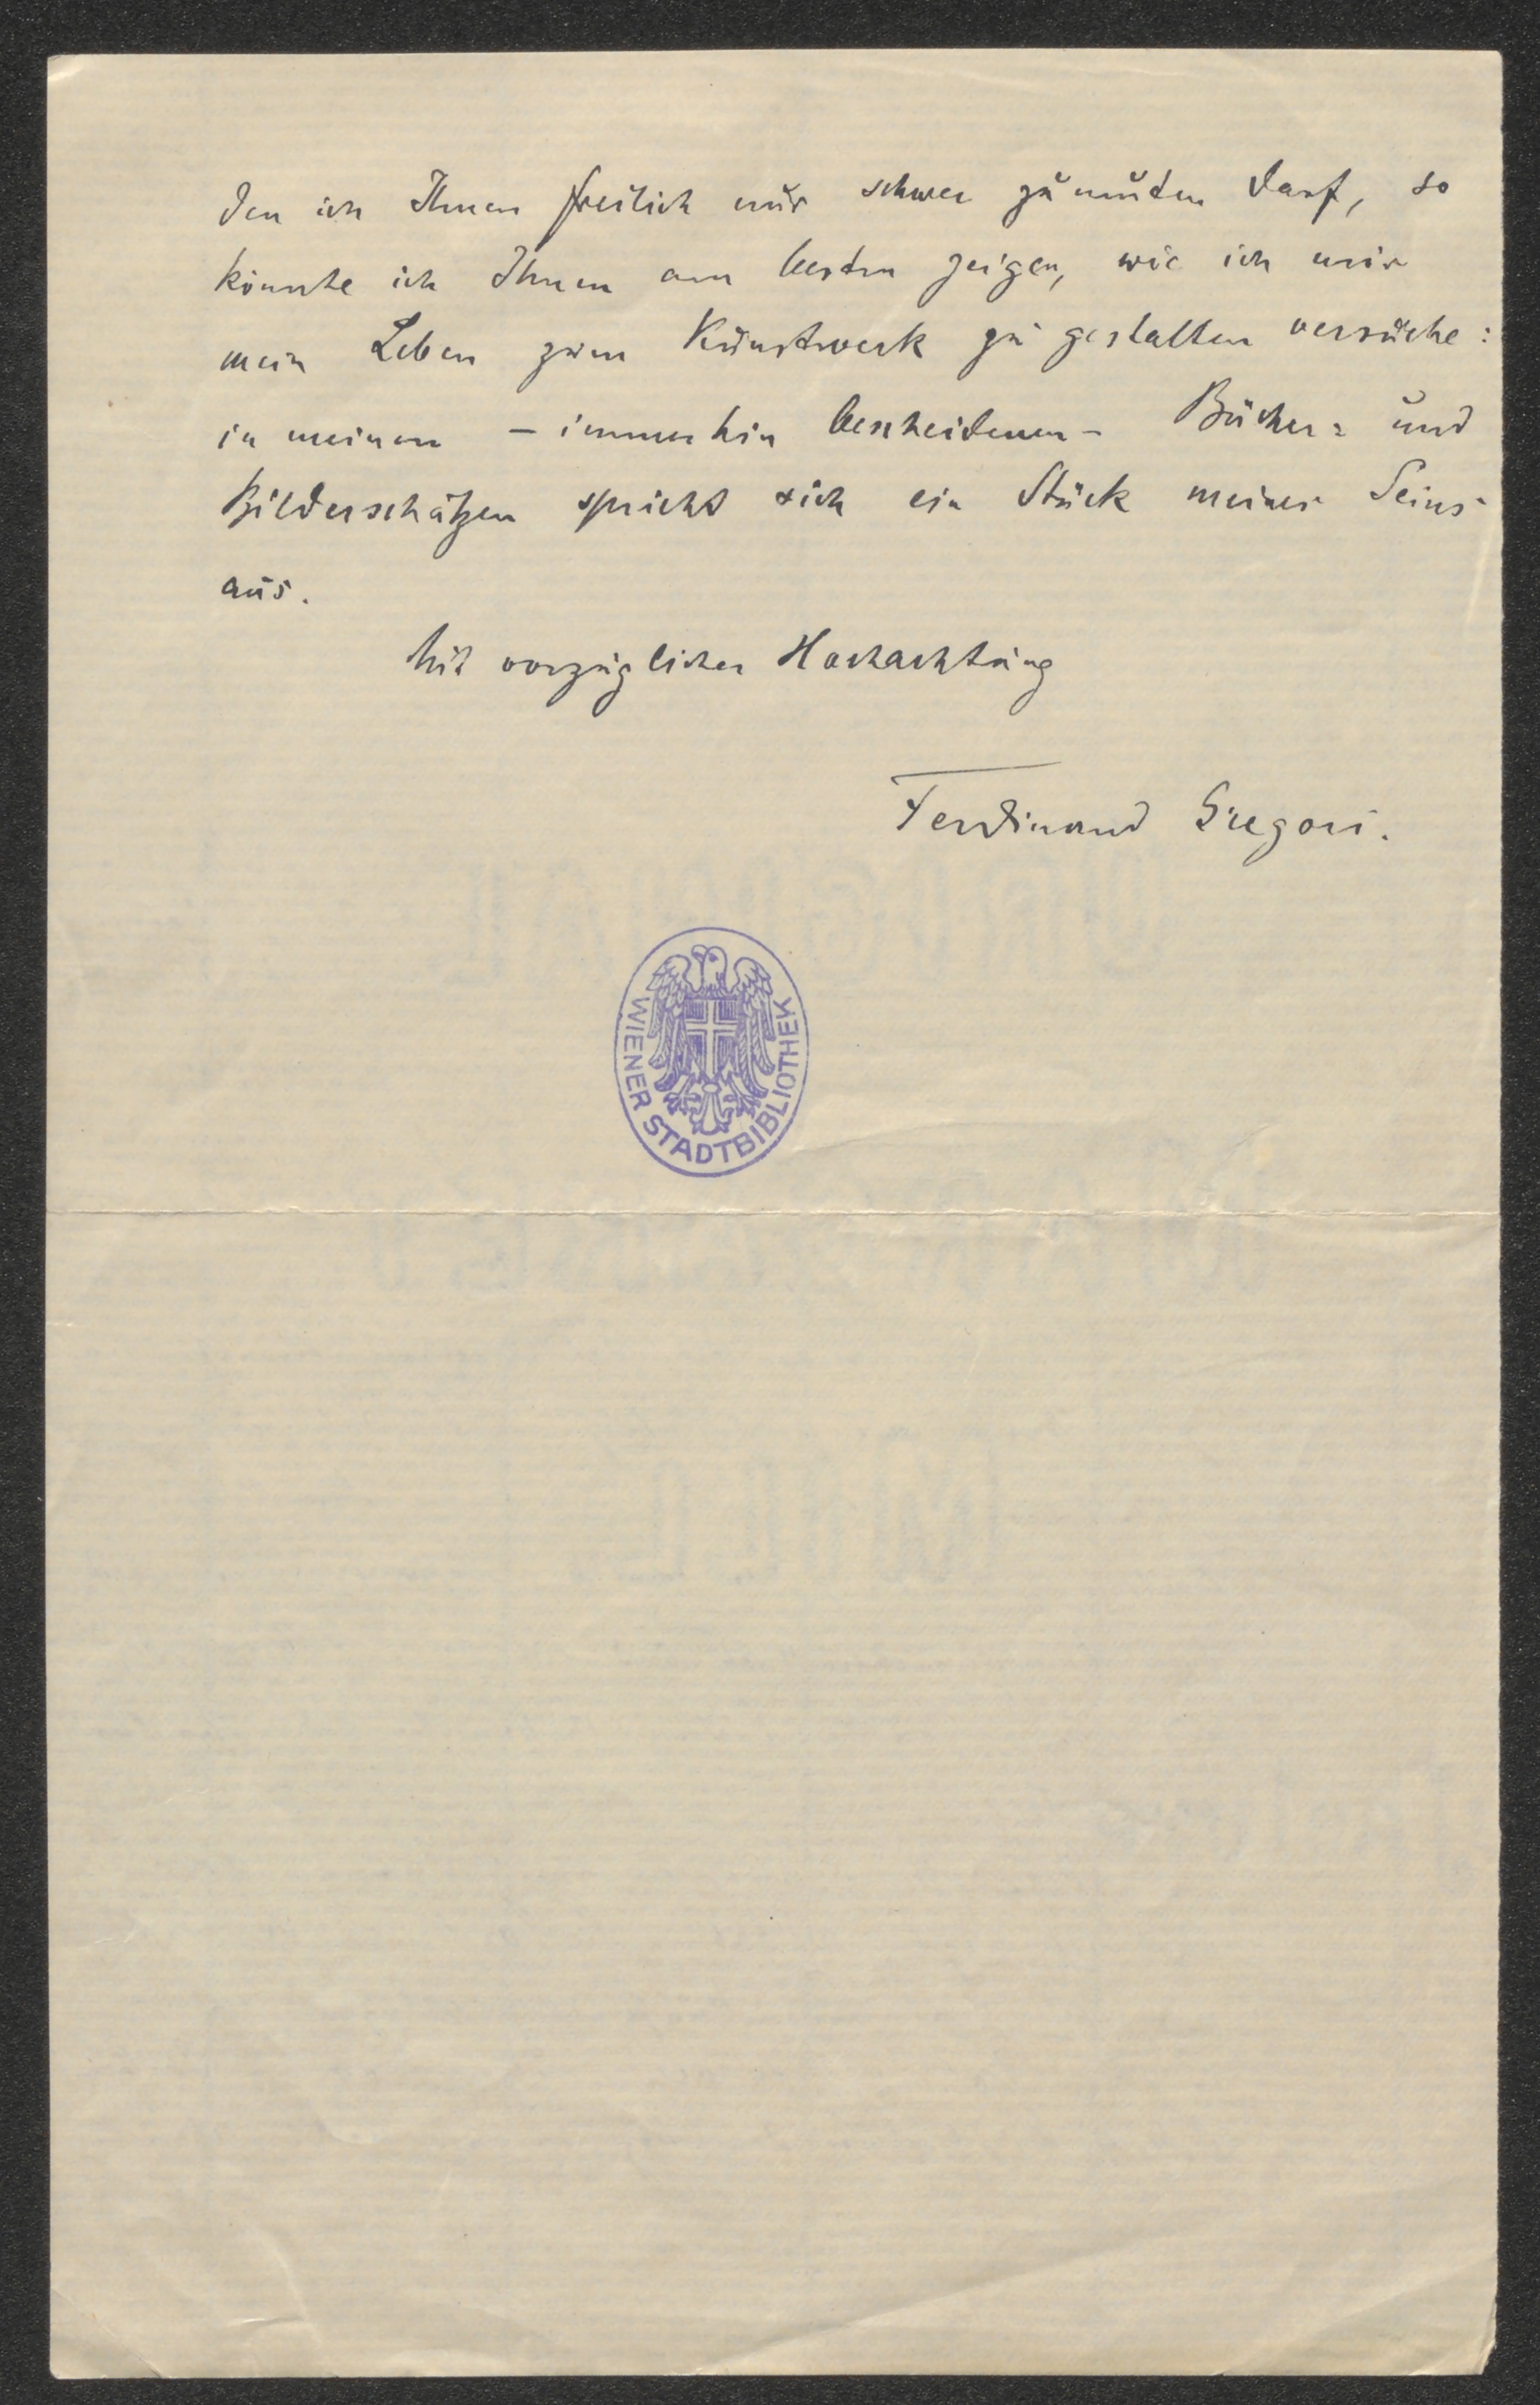 den ich Ihnen freilich nur schwer zumuten darf, so
könnte ich Ihnen am besten zeigen, wie ich mir
mein Leben zum Kunstwerk zu gestalten versuche:
in meinen – immerhin bescheidenen – Bücher= und
Bilderschätzen spricht sich ein Stück meines Seins
aus.
Mit vorzüglicher Hochachtung
Ferdinand Gregori.
WIENER STADTBIBLIOTHEK